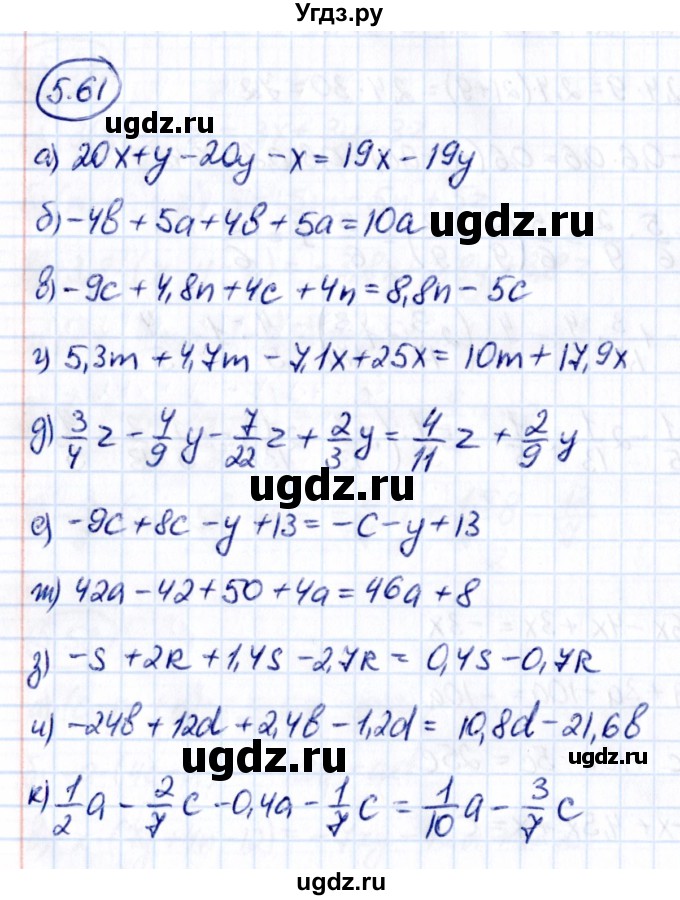 Угдз.ру
5.61
ugdz.ru
а) 20x+y-20y-x=19x-19y
б) -4b+5a+4b+5a=10a
ugdz.ru
в) -9c+4,8n+4c+4n=8,8n-5c
г) 5,3m+4,7m-7,1x+25x=10m+17,9x
д) 3/4 z - 4/9 y - 7/22 z + 2/3 y = 4/11 z + 2/9 y
ugdz.ru
е) -9c+8c-y+13=-c-y+13
ж) 42a-42+50+4a=46a+8
з) -s+2k+1,4s-2,7k=0,4s-0,7k
и) -24b+12d+2,4b-1,2d=10,8d-21,6b
ugdz.ru
к) 1/2 a - 2/7 c - 0,4a - 1/7 c = 1/10 a - 3/7 c
ugdz.ru